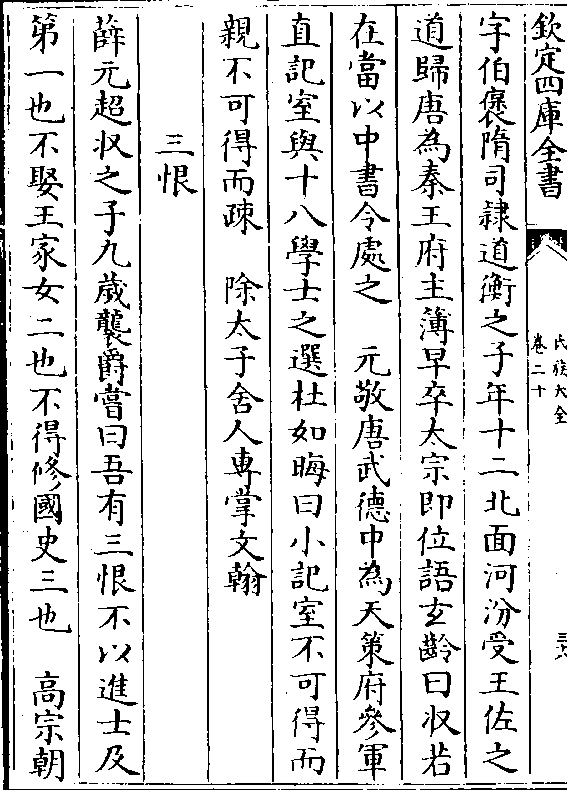 欽定四庫全書
氏族大全
卷二十
字伯褒隋司隸道衡之子年十二北面河汾受王佐之
道歸唐為秦王府主簿早卒太宗即位語玄齡曰收若
在當以中書令處之　元敬唐武德中為天策府參軍
直記室與十八學士之選杜如晦曰小記室不可得而
親不可得而疎　除太子舍人專掌文翰
三恨
薛元超收之子九歲襲爵嘗曰吾有三恨不以進士及
第一也不娶王家女二也不得修國史三也　高宗朝